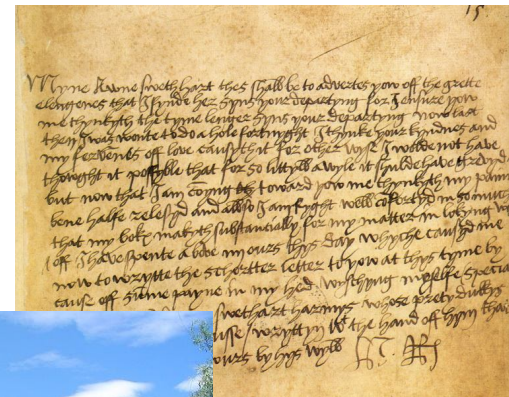 15
Myne awne swethart thes shall be to advertes yow off the grette
elengenes that I fynde her syns your departyng for I ensure yow
me thynkyth the tyme lenger syns your departyng now last
then I was wonte to do a hole fortnyght I thynke your kyndnes and
my fervenes off love causyth it for other wyse I wolde not have
thowght it possyble that for so littyll a wyle it shulde have grevyd
but now that I am comyng toward yow me thynkyth my pain
bene halfe relesyd and allso I am ryght well comfortyd in so muche
that my boke makyth substancially for my matter in lokyng
off I have spente a bove iiii ours thys day whyche causyd me
now to wrytte the schortter letter to yow at thys tyme by
cause off sume payne in my hed wischyng myselfe specia
swethart harmys whose prety dukkys
kusse wryttyn with the hand off hym that
yours by hys wyll